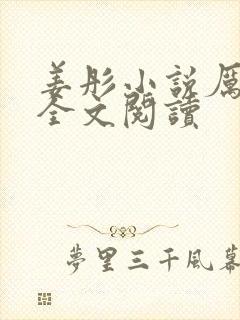 姜彤小说厲
全文閱讀
夢里三千風幕